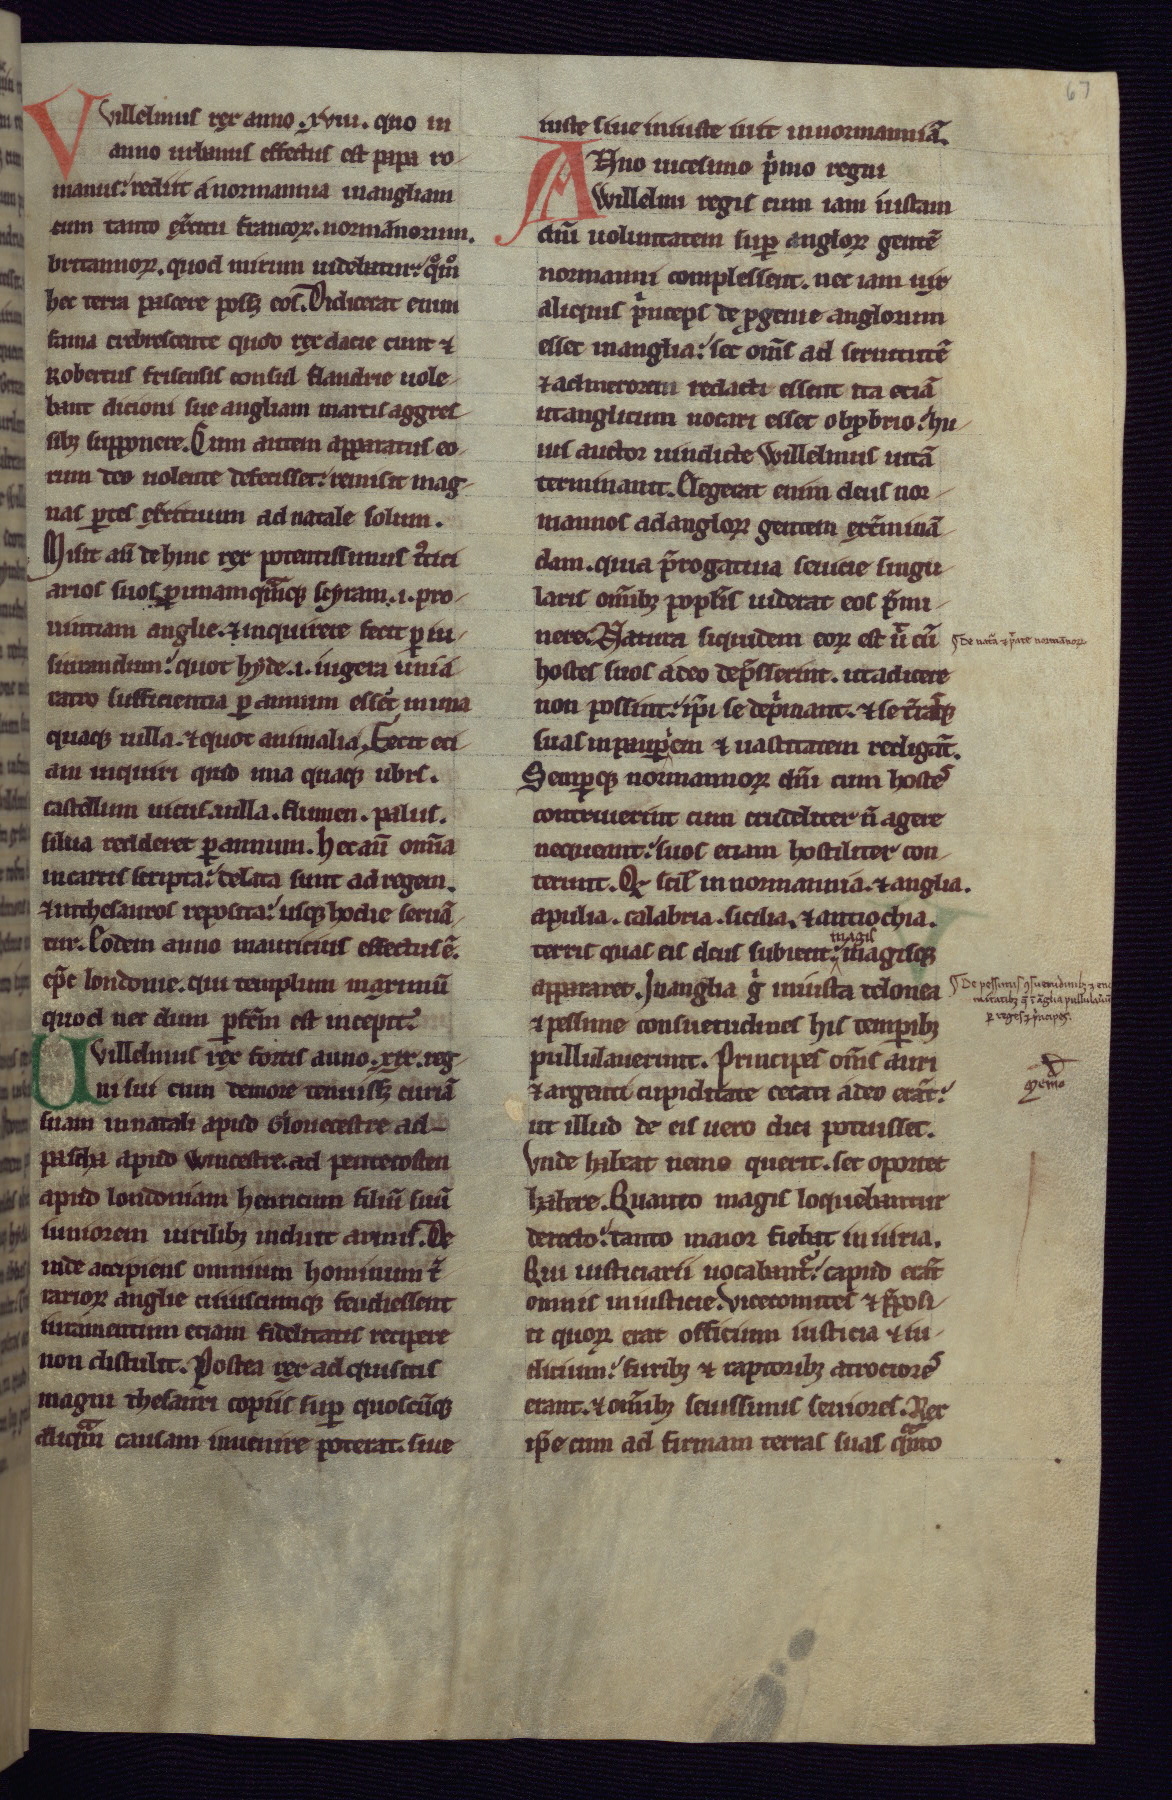 67
Villelmus rex anno .xviii. quo in
anno urbanus effectus est papa ro-
manus: rediit a normannia in angliam
cum tanto exͨitu francoꝝ. normānorum.
britannoꝝ. quod mirum uidebatur: qͦm̊
hec terra pascere possꝫ eos. Didicerat enim
fama crebrescente quod rex dacie cnut ⁊
Robertus frisensis consul flandrie uole-
bant dicioni sue angliam martis aggres-
sibꝫ supponere. Cum autem apparatus eo-
rum deo nolente defecisset: remisit mag-
nas ꝑtes exercituum ad natale solum.
Misit aū dehinc rex potentissimus iͬticι
arios suos ꝑ unamqͣmcꝫ scyram .i. pro-
uintiam anglie. ⁊ inquirere fecit ꝑ iu-
siurandum: quot hyde .i. iugera uni a-
ratro sufficientia ꝑ annum essēt in una
quaqꝫ uilla. ⁊ quot animalia. Fecit eci-
am inquiri quid una quaqꝫ urbs.
castellum uicus. uilla. flumen. palus.
silua redderet ꝑ annum. Hec aū omīa
in cartis scripta: delata sunt ad regem.
⁊ in thesauros reposita: usqꝫ hodie seruā-
tur. Eodem anno mauricius effectus ē.
ep̄c londonie. qui templum maximū
quod nec dum ꝑfcm̄ est incepit.
Uvillelmus rex fortis anno .xix. reg-
ni sui cum de more tenuissꝫ curiā
suam in natali apud Glouecestre ad
pascha apud wincestre. ad pentecosten
apud londoniam henricum filiū suū
iuniorem uirilibꝫ induit armis. De
inde accipiens omnium hominum t̄
rarioꝝ anglie cuiuscumqꝫ feudi essent
iuramentum etiam fidelitatis recipere
non distulit. Postea rex adquisitis
magni thesauri copiis suꝑ quoscūqꝫ
aliqͣm causam inuenire poterat. siue
iuste siue iniuste iuit in normanniā.
ANno uicesimo pͥmo regni
Willelmi regis cum iam iustam
dn̄i uoluntatem suꝑ angloꝝ gentē
normanni complessent. nec iam uix
aliquis pͥnceps de ꝓgenie anglorum
esset in anglia: set om̄s ad seruitutē
⁊ ad merorem redacti essent ita etiā
ut anglicum uocari esset obꝓbrio: hu-
ius auctor uindicte Willelmus uitā
terminauit. Elegerat enim deus nor-
mannos ad angloꝝ gentem ext̄minā-
dam. quia p̄rogatiua seuicie singu-
laris om̄ibꝫ popl̄is uiderat eos p̄mi-
nere. Natura siquidem eoꝝ est ut̄ cū
hostes suos adeo dep̄sserint. ut adicere
non possint: ip̄i se dep̄mant. ⁊ se t̄rasqꝫ
suas in pauꝑiem ⁊ uastitatem redigāt.
Semꝑqꝫ normannoꝝ dn̄i cum hostes
contriuerint cum crudeliter n̄ agere
nequeant: suos etiam hostiliter con-
terunt. Qd̄ scil̄ in normannia. ⁊ anglia.
apulia. calabria. sicilia. ⁊ antiochia.
terris quas eis deus subiecit: magis magisqꝫ
appararet. In anglia gͥ iniusta telonea
⁊ pessime consuetudines his temꝑibꝫ
pullulauerunt. Principes om̄s auri
⁊ argenti cupiditate cecati adeo erāt:
ut illud de eis uero dici potuisset.
Vnde habeat nemo querit. set oportet
habere. Quanto magis loquebantur
de recto: tanto maior fiebat iniuria.
Qui iusticiarii uocabantͬ: capud erāt
omnis iniusticie. Vicecomites ⁊ p̄posi-
ti quoꝝ erat officium iusticia ⁊ iu-
dicium: furibꝫ ⁊ raptoribꝫ atrociores
erant. ⁊ om̄ibꝫ seuissimis seuiores. Rex
ip̄e cum ad firmam terras suas qͣnto
De natᷓa ⁊ pͥtate normānoꝝ
De pessimis ꝯsuetudinibꝫ
q̄ ī anglia pullulauūt
ꝑ reges ⁊ pͥncipes.